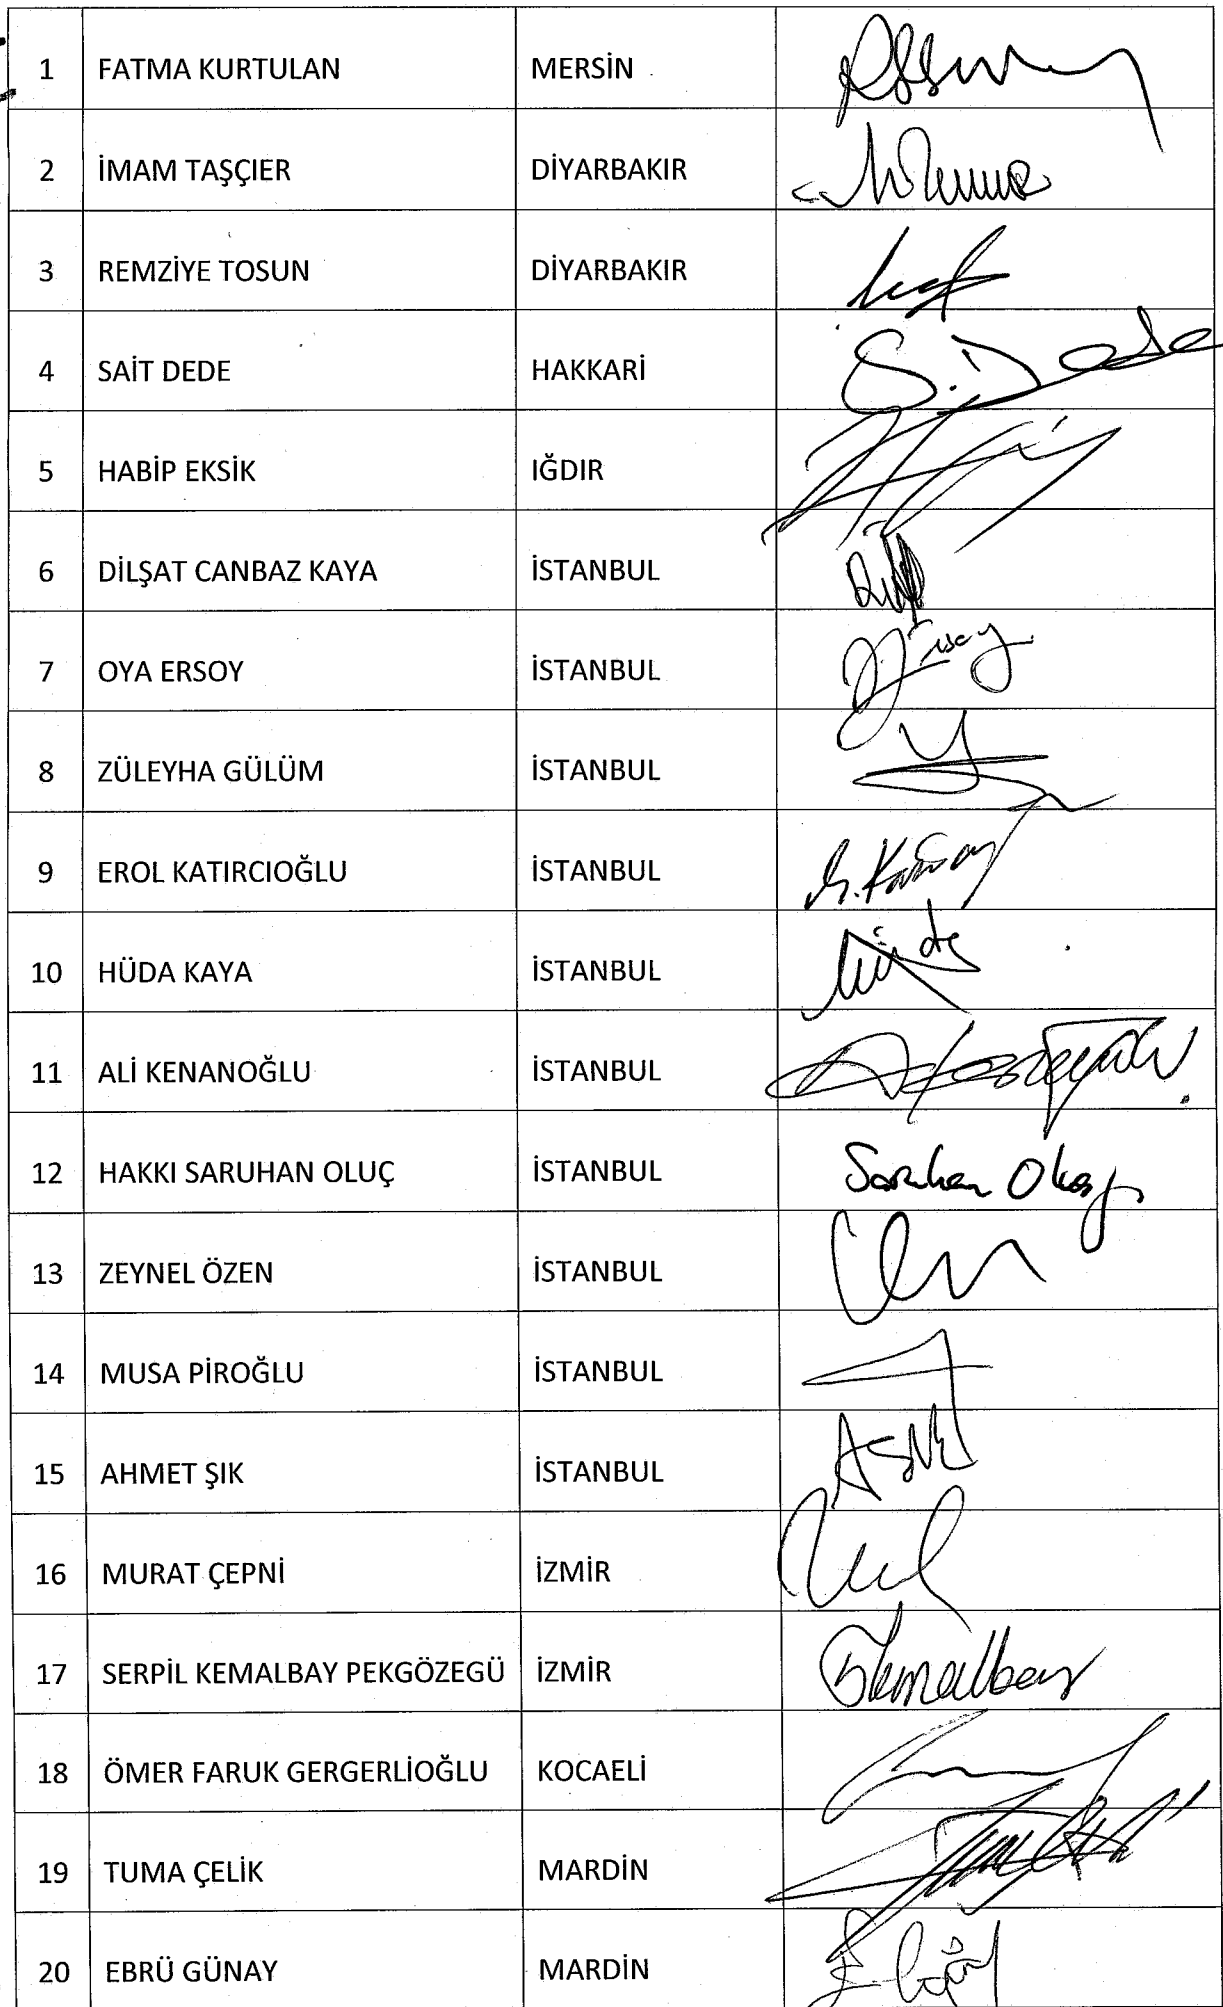 1 FATMA KURTULAN MERSİN
2 İMAM TAŞÇIER DİYARBAKIR
3 REMZİYE TOSUN DİYARBAKIR
4 SAİT DEDE HAKKARİ S. Dede
5 HABİP EKSİK IĞDIR
6 DİLŞAT CANBAZ KAYA İSTANBUL
7 OYA ERSOY İSTANBUL
8 ZÜLEYHA GÜLÜM İSTANBUL
9 EROL KATIRCIOĞLU İSTANBUL
10 HÜDA KAYA İSTANBUL
11 ALİ KENANOĞLU İSTANBUL
12 HAKKI SARUHAN OLUÇ İSTANBUL
13 ZEYNEL ÖZEN İSTANBUL
14 MUSA PİROĞLU İSTANBUL
15 AHMET ŞIK İSTANBUL
16 MURAT ÇEPNİ İZMİR
17 SERPİL KEMALBAY PEKGÖZEGÜ İZMİR
18 ÖMER FARUK GERGERLİOĞLU KOCAELİ
19 TUMA ÇELİK MARDİN
20 EBRÜ GÜNAY MARDİN